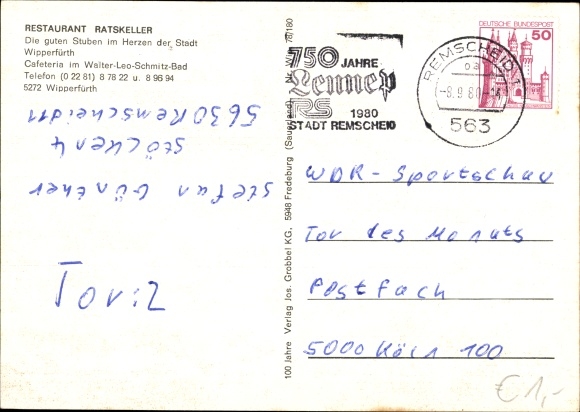 RESTAURANT RATSKELLER
Die guten Stuben im Herzen der Stadt
Wipperfürth
Cafeteria im Walter-Leo-Schmitz-Bad
Telefon (0 22 81) 8 78 22 u. 8 96 94
5272 Wipperfürth
Stefan Günther
Stöcken 4
5630 Remscheid 11
Tor: 2
100 Jahre Verlag Jos. Grobbel KG, 5948 Fredeburg (Sauerland)
78/180
750 JAHRE
Lennep
RS
1980
STADT REMSCHEID
REMSCHEID 1
-8.9.80
563
DEUTSCHE BUNDESPOST
50
WDR - Sportschau
Tor des Monats
Postfach
5000 Köln 100
€ 1,-